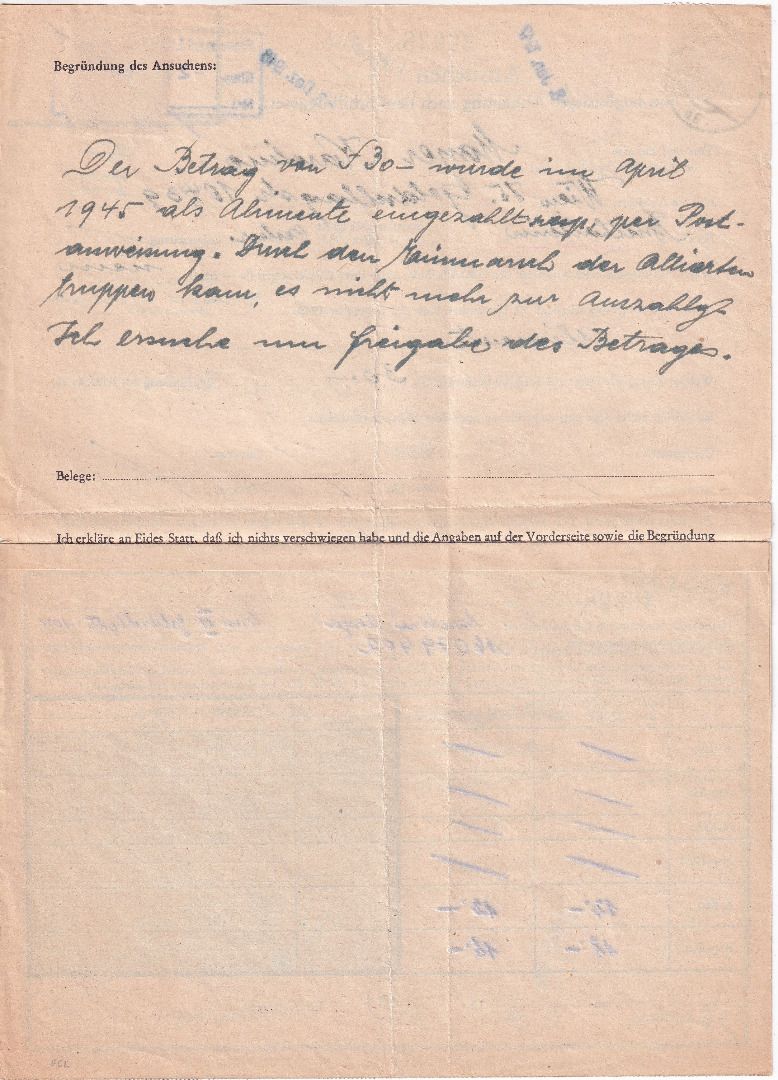 Begründung des Ansuchens:
Der Betrag von S 30– wurde im April
1945 als Alimente eingezahlt resp. per Post-
anweisung. Durch den Einmarsch der Alliierten
truppen kam, es nicht mehr zur Auszahlg.
Ich ersuche um freigabe des Betrages.
Belege:
Ich erkläre an Eides Statt, daß ich nichts verschwiegen habe und die Angaben auf der Vorderseite sowie die Begründung